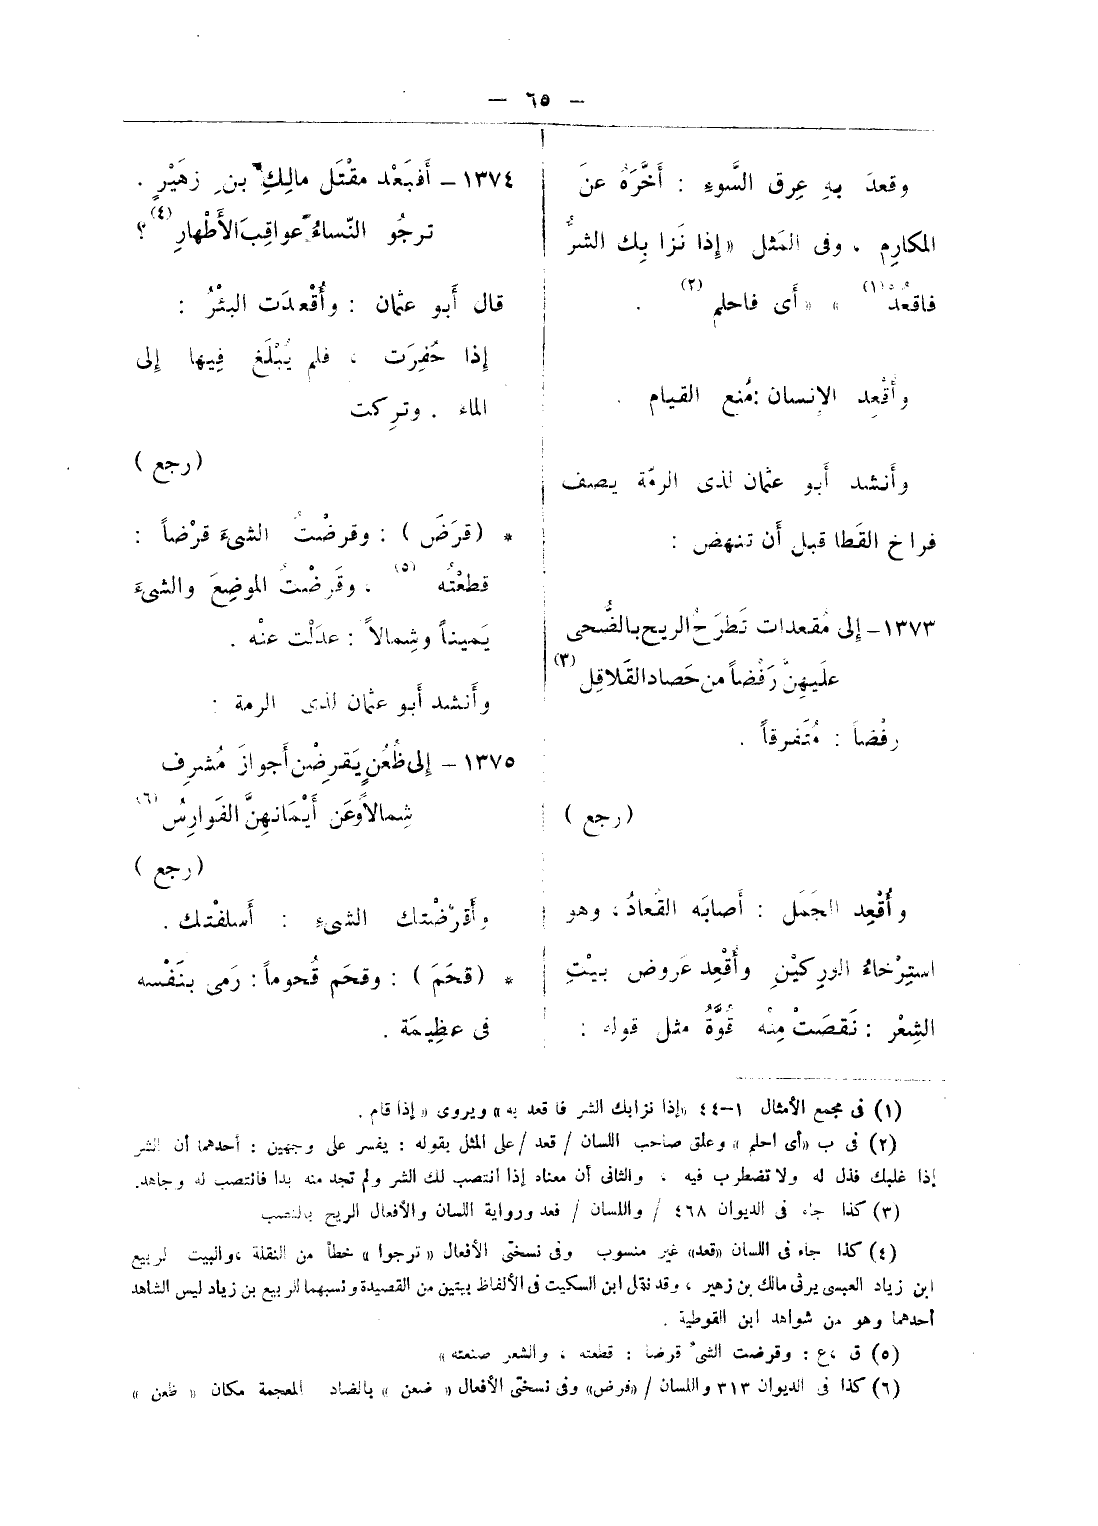 — ٦٥ —
وقعدَ بهِ عِرق السَّوءِ : أَخَّرَهُ عنَ
المكارِمِ . وفى المَثل « إِذا نَزا بِك الشرُّ
فاقعُدْ (١) » « أَى فاحلم (٢) .
وأُقْعِد الإِنسان : مُنع القيام .
وأَنشد أَبو عثمان لذى الرمّة يصف
فراخ القَطا قبل أَن تنهض :
١٣٧٣ – إِلى مُقعدات تَطرَحُ الريح بالضُّحى
علَيهِنّ رَفْضاً من حَصاد القَلاقِل (٣)
رفْضاً : مُتَفرقاً .
( رجع )
وأُقْعِد الجَمَل : أَصابَه القُعادُ ، وهو
استِرْخاءُ الورِكيْنِ وأُقْعِد عَروض بيْتِ
الشِعْر : نَقصَتْ مِنْه قُوَّةٌ مثل قوله :
١٣٧٤ – أَفبَعْد مقْتَل مالِكِ بن زهَيْرٍ .
ترجُو النّساءُ عواقِبَ الأَطْهارِ (٤) ؟
قال أَبو عثمان : وأُقْعدَت البئْرُ :
إِذا حُفِرَت ، فلم يُبْلَغ فِيها إِلى
الماء . وترِكت
( رجع )
* ( قرَضَ ) : وقرضْتُ الشىءَ قرْضاً :
قطعْتُه (٥) ، وقَرضْتُ الموضِعَ والشىءَ
يَميناً وشِمالاً : عدَلْت عنْه .
وأَنشد أَبو عثمان لذى الرمة :
١٣٧٥ – إِلى ظُعُنٍ يَقرِضْن أَجوازَ مُشرِف
شِمالاً وعَن أَيْمَانهِنَّ الفَوارِسُ (٦)
( رجع )
وأَقرَضْتك الشىءِ : أَسلفْتك .
* ( قحَمَ ) : وقحَم قُحوماً : رَمى بنَفْسه
فى عظِيمَة .
(١) فى مجمع الأمثال ١–٤٤ «إذا نزا بك الشر فاقعد به» ويروى « إذا قام .
(٢) فى ب «أى احلم » وعلق صاحب اللسان / قعد / على المثل بقوله : يفسر على وجهين : أحدهما أن الشر
إذا غلبك فذل له ولا تضطرب فيه ، والثانى أن معناه إذا انتصب لك الشر ولم تجد منه بدا فانتصب له وجاهد.
(٣) كذا جاء فى الديوان ٤٦٨ / واللسان / قعد ورواية اللسان والأفعال الريح بالنصب
(٤) كذا جاء فى اللسان «قعد» غير منسوب وفى نسختى الأفعال « ترجوا » خطأ من النقلة ، والبيت لربيع
ابن زياد العبسى يرثى مالك بن زهير ، وقد نقل ابن السكيت فى الألفاظ بيتين من القصيدة ونسبهما لربيع بن زياد ليس الشاهد
أحدهما وهو من شواهد ابن القوطية .
(٥) ق ، ع : وقرضت الشىْ قرضا : قطعته ، والشعر صنعته »
(٦) كذا فى الديوان ٣١٣ واللسان / «قرض» وفى نسختى الأفعال « ضعن » بالضاد المعجمة مكان « ظعن »